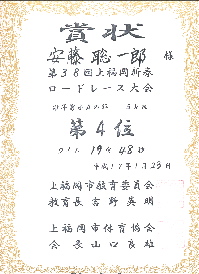 賞状
安藤聡一郎 様
第38回上福岡新春
ロードレース大会
5km
第4位
タイム 19分48秒
平成17年1月23日
上福岡市教育委員会
教育長 吉野英明
上福岡市体育協会
会長 山口良雄